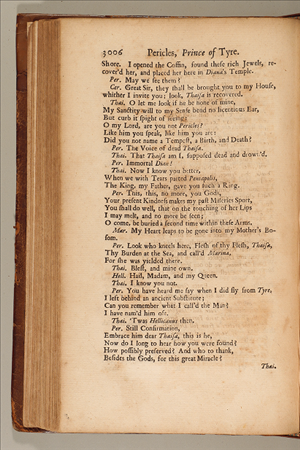 3006 Pericles, Prince of Tyre.
Shore. I opened the Coffin, found these rich Jewels, re-
cover'd her, and placed her here in Diana's Temple.
Per. May we see them?
Cer. Great Sir, they shall be brought you to my House,
whither I invite you; look, Thaisa is recovered.
Thai. O let me look if he be none of mine,
My Sanctity will to my Sense bend no licentious Ear,
But curb it spight of seeing;
O my Lord, are you not Pericles?
Like him you speak, like him you are:
Did you not name a Tempest, a Birth, and Death?
Per. The Voice of dead Thaisa.
Thai. That Thaisa am I, supposed dead and drown'd.
Per. Immortal Dian!
Thai. Now I know you better,
When we with Tears parted Pentapolis,
The King, my Father, gave you such a Ring.
Per. This, this, no more, you Gods,
Your present Kindness makes my past Miseries Sport,
You shall do well, that on the touching of her Lips
I may melt, and no more be seen;
O come, be buried a second time within these Arms.
Mar. My Heart leaps to be gone into my Mother's Bo-
som.
Per. Look who kneels here, Flesh of thy Flesh, Thaisa,
Thy Burden at the Sea, and call'd Marina,
For she was yielded there.
Thai. Blest, and mine own.
Hell. Hail, Madam, and my Queen.
Thai. I know you not.
Per. You have heard me say when I did fly from Tyre,
I left behind an ancient Substitute;
Can you remember what I call'd the Man?
I have nam'd him oft.
Thai. 'Twas Hellicanus then.
Per. Still Confirmation,
Embrace him dear Thaisa, this is he,
Now do I long to hear how you were found?
How possibly preserved? And who to thank,
Besides the Gods, for this great Miracle?
Thai.